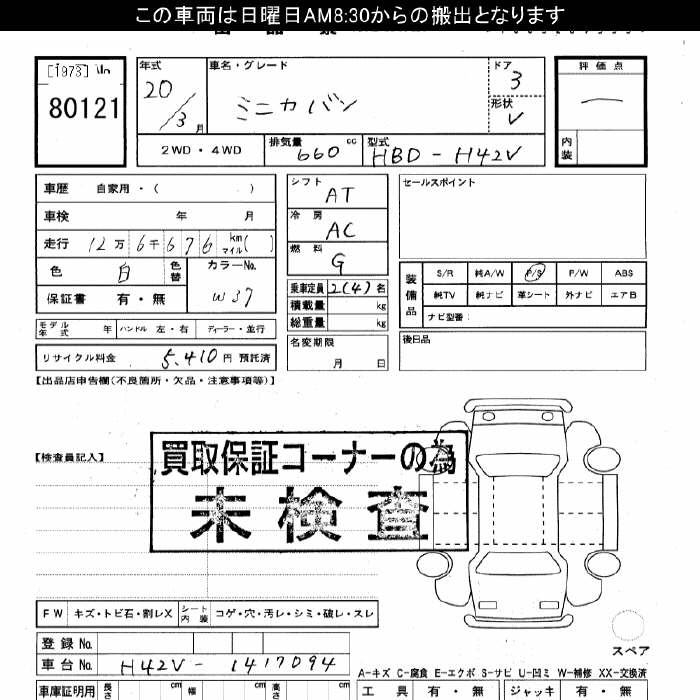 この車両は日曜日AM8:30からの搬出となります
[1973]
80121
年式
20/3月
車名・グレード
ミニカバン
ドア
3
形状
V
評価点
内装
2WD・4WD
排気量 660 cc
型式 HBD-H42V
車歴 自家用・( )
車検 年 月
走行 12万6千676 km マイル( )
色 白 色替
カラーNo. W37
保証書 有・無
モデル年式 年 ハンドル 左・右 ディーラー・並行
リサイクル料金 5,410円 預託済
シフト AT
冷房 AC
燃料 G
乗車定員 2(4)名
積載量 kg
総重量 kg
名変期限
月 日
セールスポイント
装備品
S/R 純A/W P/S P/W ABS
純TV 純ナビ 革シート 外ナビ エアB
ナビ型番:
後日品
【出品店申告欄(不良箇所・欠品・注意事項等)】
【検査員記入】
買取保証コーナーの為
未検査
FW キズ・トビ石・割レX シート内装 コゲ・穴・汚レ・シミ・破レ・スレ
スペア
登録No.
車台No. H42V-1417094
A-キズ C-腐食 E-エクボ S-サビ U-凹ミ W-補修 XX-交換済
車庫証明用 長さ cm 幅 cm 高さ cm
工具 有・無 ジャッキ 有・無